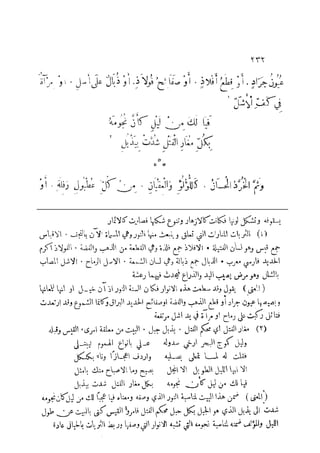 ٢٣٢
عُيُونُ جَرَادٍ ، أَوْ قِطَعُ أَفْلَاذٍ ، أَوْ صَفَائِحُ فُولَاذٍ ، أَوْ ذُبَالٌ عَلَى أَسَلٍ ، أَوْ مِرْآةٌ
فِي كَفِّ الْأَشَلِّ
فَيَا لَكَ مِنْ لَيْلٍ كَأَنَّ نُجُومَهُ
بِكُلِّ مُغَارِ الْفَتْلِ شُدَّتْ بِيَذْبُلِ
***
وَثَمَّ الْخُرَّدُ الْحِسَانُ ، كَاللُّؤْلُؤِ وَالْمَرْجَانِ ، مِنْ كُلِّ عُطْبُولٍ رِفَلَّةٍ ، أَوْ
يستوقد وتشكل لونها فكانت كالازهار وتنوع شكلها فصارت كالاثمار
(١) الثريات المنارات التي تعلق وينبعث منها النور وهي المسماة الآن بالنجف ، الاقباس
جمع قبس وهو لسان الفتيلة ، الافلاذ جمع فلذة وهي القطعة من الذهب والفضة ، الفولاذ أكرم
الحديد فارسي معرب ، الذبال جمع ذبالة وهي لسان الشمعة ، الاسل الرماح ، الاشل المصاب
بالشلل وهو مرض يصيب اليد والذراع فيحدث فيهما رعشة
(المعنى) يقول وقد سطعت هذه الانوار فكأن ألسنة النور اذان خيل او انها لمعانها
وبصيصها عيون جراد أو قطع الذهب والفضة او صفائح الحديد البراق وكأنما الشموع وقد ارتعدت
فتائل ركبت على رماح او مرآة في يد اشل مرتعشة
(٢) مغار الفتل أي محكم الفتل ، يذبل جبل ، البيت من معلقة امرىء القيس وقبله
وليل كموج البحر ارخى سدوله علي بانواع الهموم ليبتلي
فقلت له لما تمطى بصلبه واردف اعجازا وناء بكلكل
الا ايها الليل الطويل الا انجل بصبح وما الاصباح منك بامثل
فيا لك من ليل كأن نجومه بكل مغار الفتل شدت بيذبل
(المعنى) ضمن هذا البيت لمناسبة النور الذي وصفه ومعناه فيا عجبا لك من ليل كان نجومه
شدت الى يذبل الذي هو الجبل بكل حبل محكم الفتل فامرؤ القيس كنى بالبيت عن طول
الليل والمؤلف ضمنه لمناسبة نجومه التي تشبه الانوار التي وصفها وربط الثريات بالحبال عادة